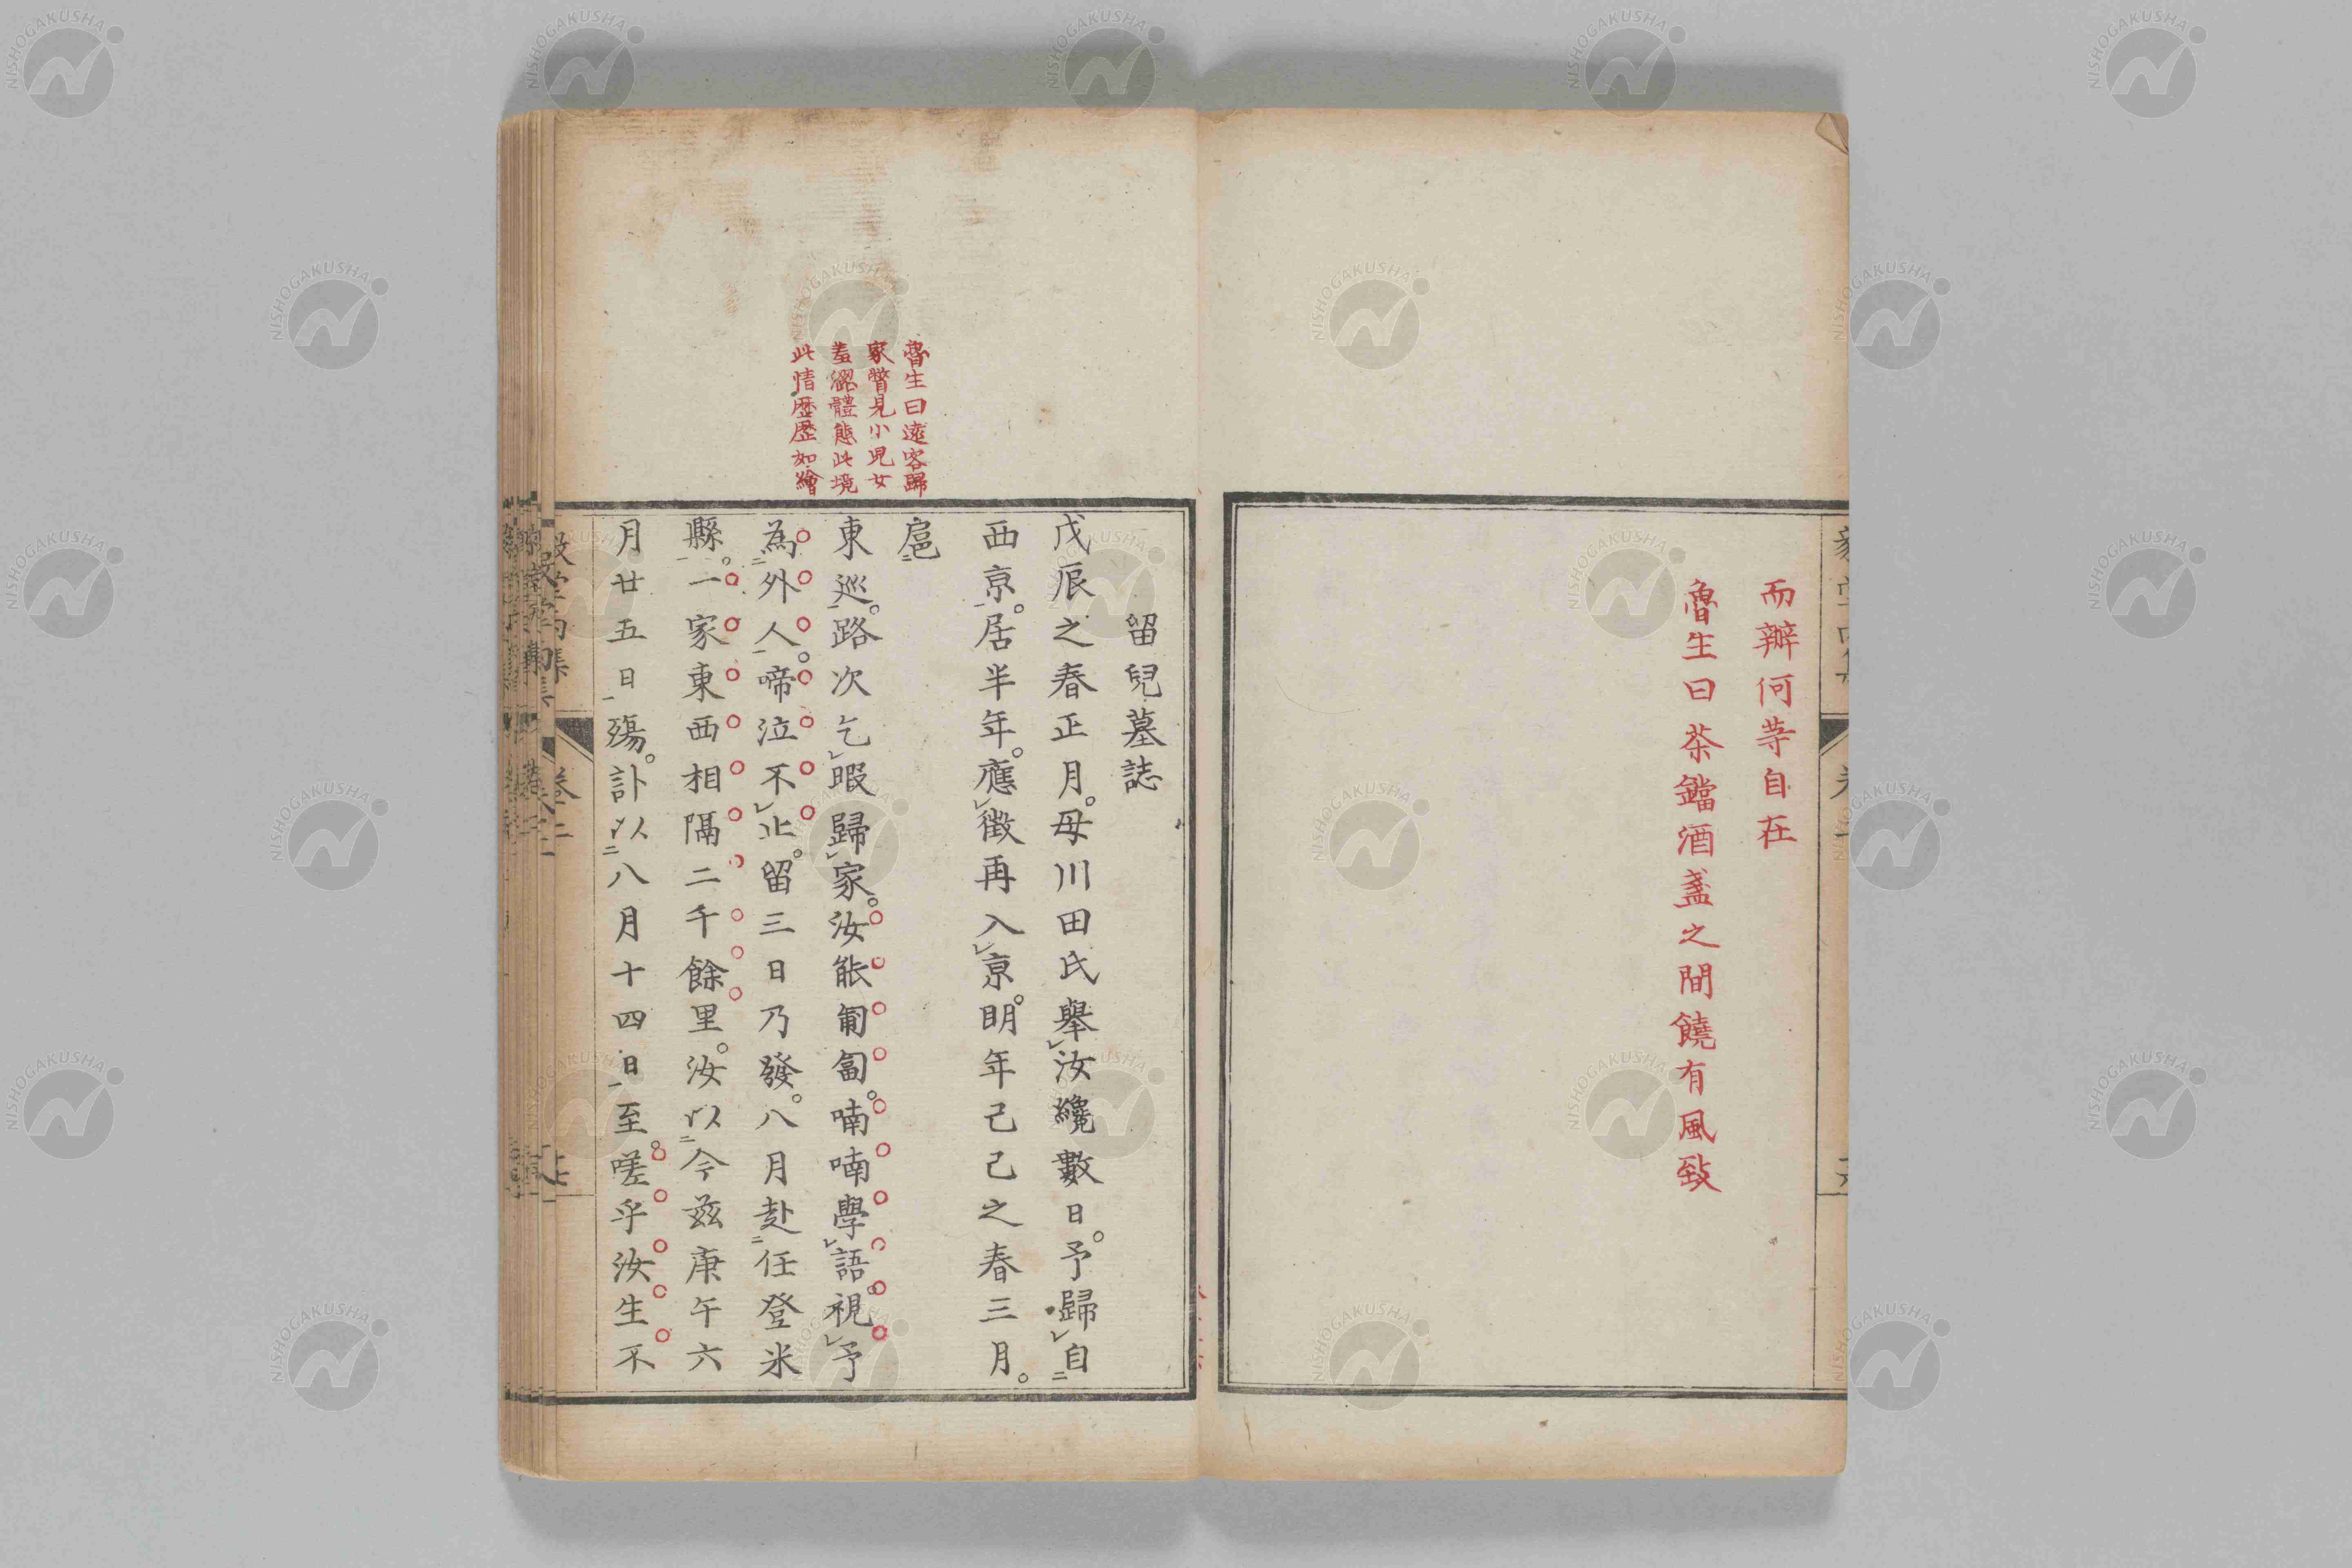 而辧何等自在
魯生曰茶鐺酒盞之間饒有風致
魯生曰遠客歸
家瞥見小兒女
羞澀體態此境
此情歷歷如繪
留兒墓誌
戊辰之春正月。母川田氏舉汝纔數日。予歸自
西京。居半年。應徵再入京。明年己巳之春三月。
扈
東巡。路次乞暇歸家。汝能匍匐。喃喃學語。視予
為外人。啼泣不止。留三日乃發。八月赴任登米
縣。一家東西相隔二千餘里。汝以今茲庚午六
月廿五日殤。訃以八月十四日至。嗟乎汝生不
卷二
NISHOGAKUSHA